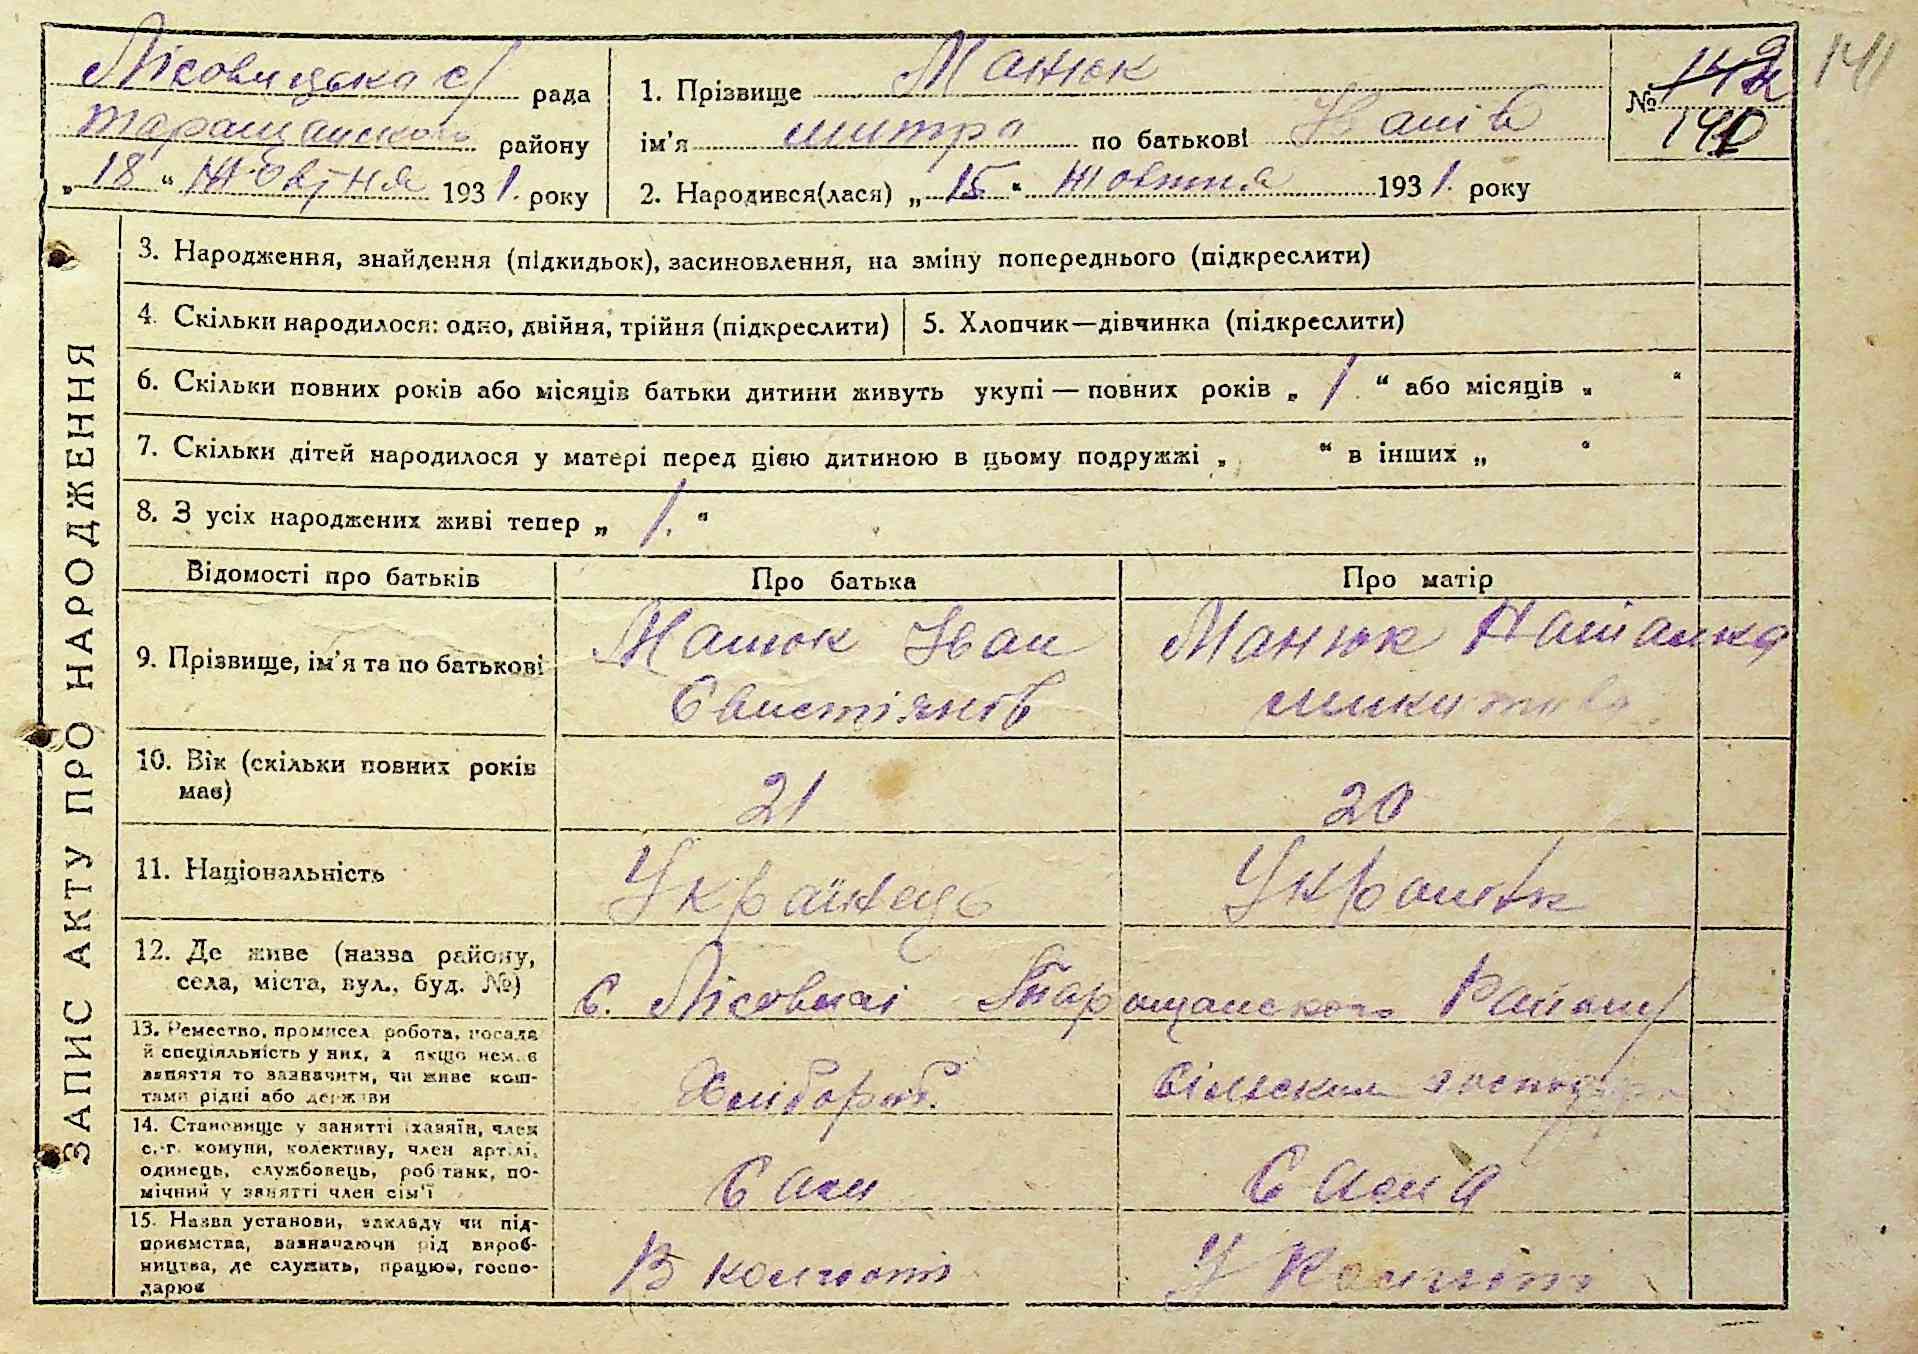 Лісовицька с/ рада
Таращанського району
„ 18 “ Жовтня 1931. року
1. Прізвище Манюк
ім'я Митро по батькові Іванів
2. Народився(лася) „ 15 “ Жовтня 1931. року
№ 140
141
ЗАПИС АКТУ ПРО НАРОДЖЕННЯ
3. Народження, знайдення (підкидьок), засиновлення, на зміну попереднього (підкреслити)
4. Скільки народилося: одно, двійня, трійня (підкреслити)
5. Хлопчик—дівчинка (підкреслити)
6. Скільки повних років або місяців батьки дитини живуть укупі — повних років „ 1 “ або місяців „ “
7. Скільки дітей народилося у матері перед цією дитиною в цьому подружжі „ “ в інших „ “
8. З усіх народжених живі тепер „ 1. “
Відомості про батьків
Про батька
Про матір
9. Прізвище, ім'я та по батькові
Манюк Іван
Манюк Наталка
Микитова
10. Вік (скільки повних років
має)
21
20
11. Національність
Українець
Українк
12. Де живе (назва району,
села, міста, вул., буд. №)
с. Лісовичі Таращанського Району
13. Ремество, промисел робота, посада
й спеціяльність у них, а якщо немає
заняття то зазначити, чи живе кош-
тами рідні або держави
Хлібороб.
14. Становище у занятті (хазяїн, член
с.-г. комуни, колективу, член артілі,
одинець, службовець, робітник, по-
мічний у занятті член сім'ї
Сам
Сама
15. Назва установи, закладу чи під-
приємства, зазначаючи рід вироб-
ництва, де служить, працює, госпо-
дарює
В
У